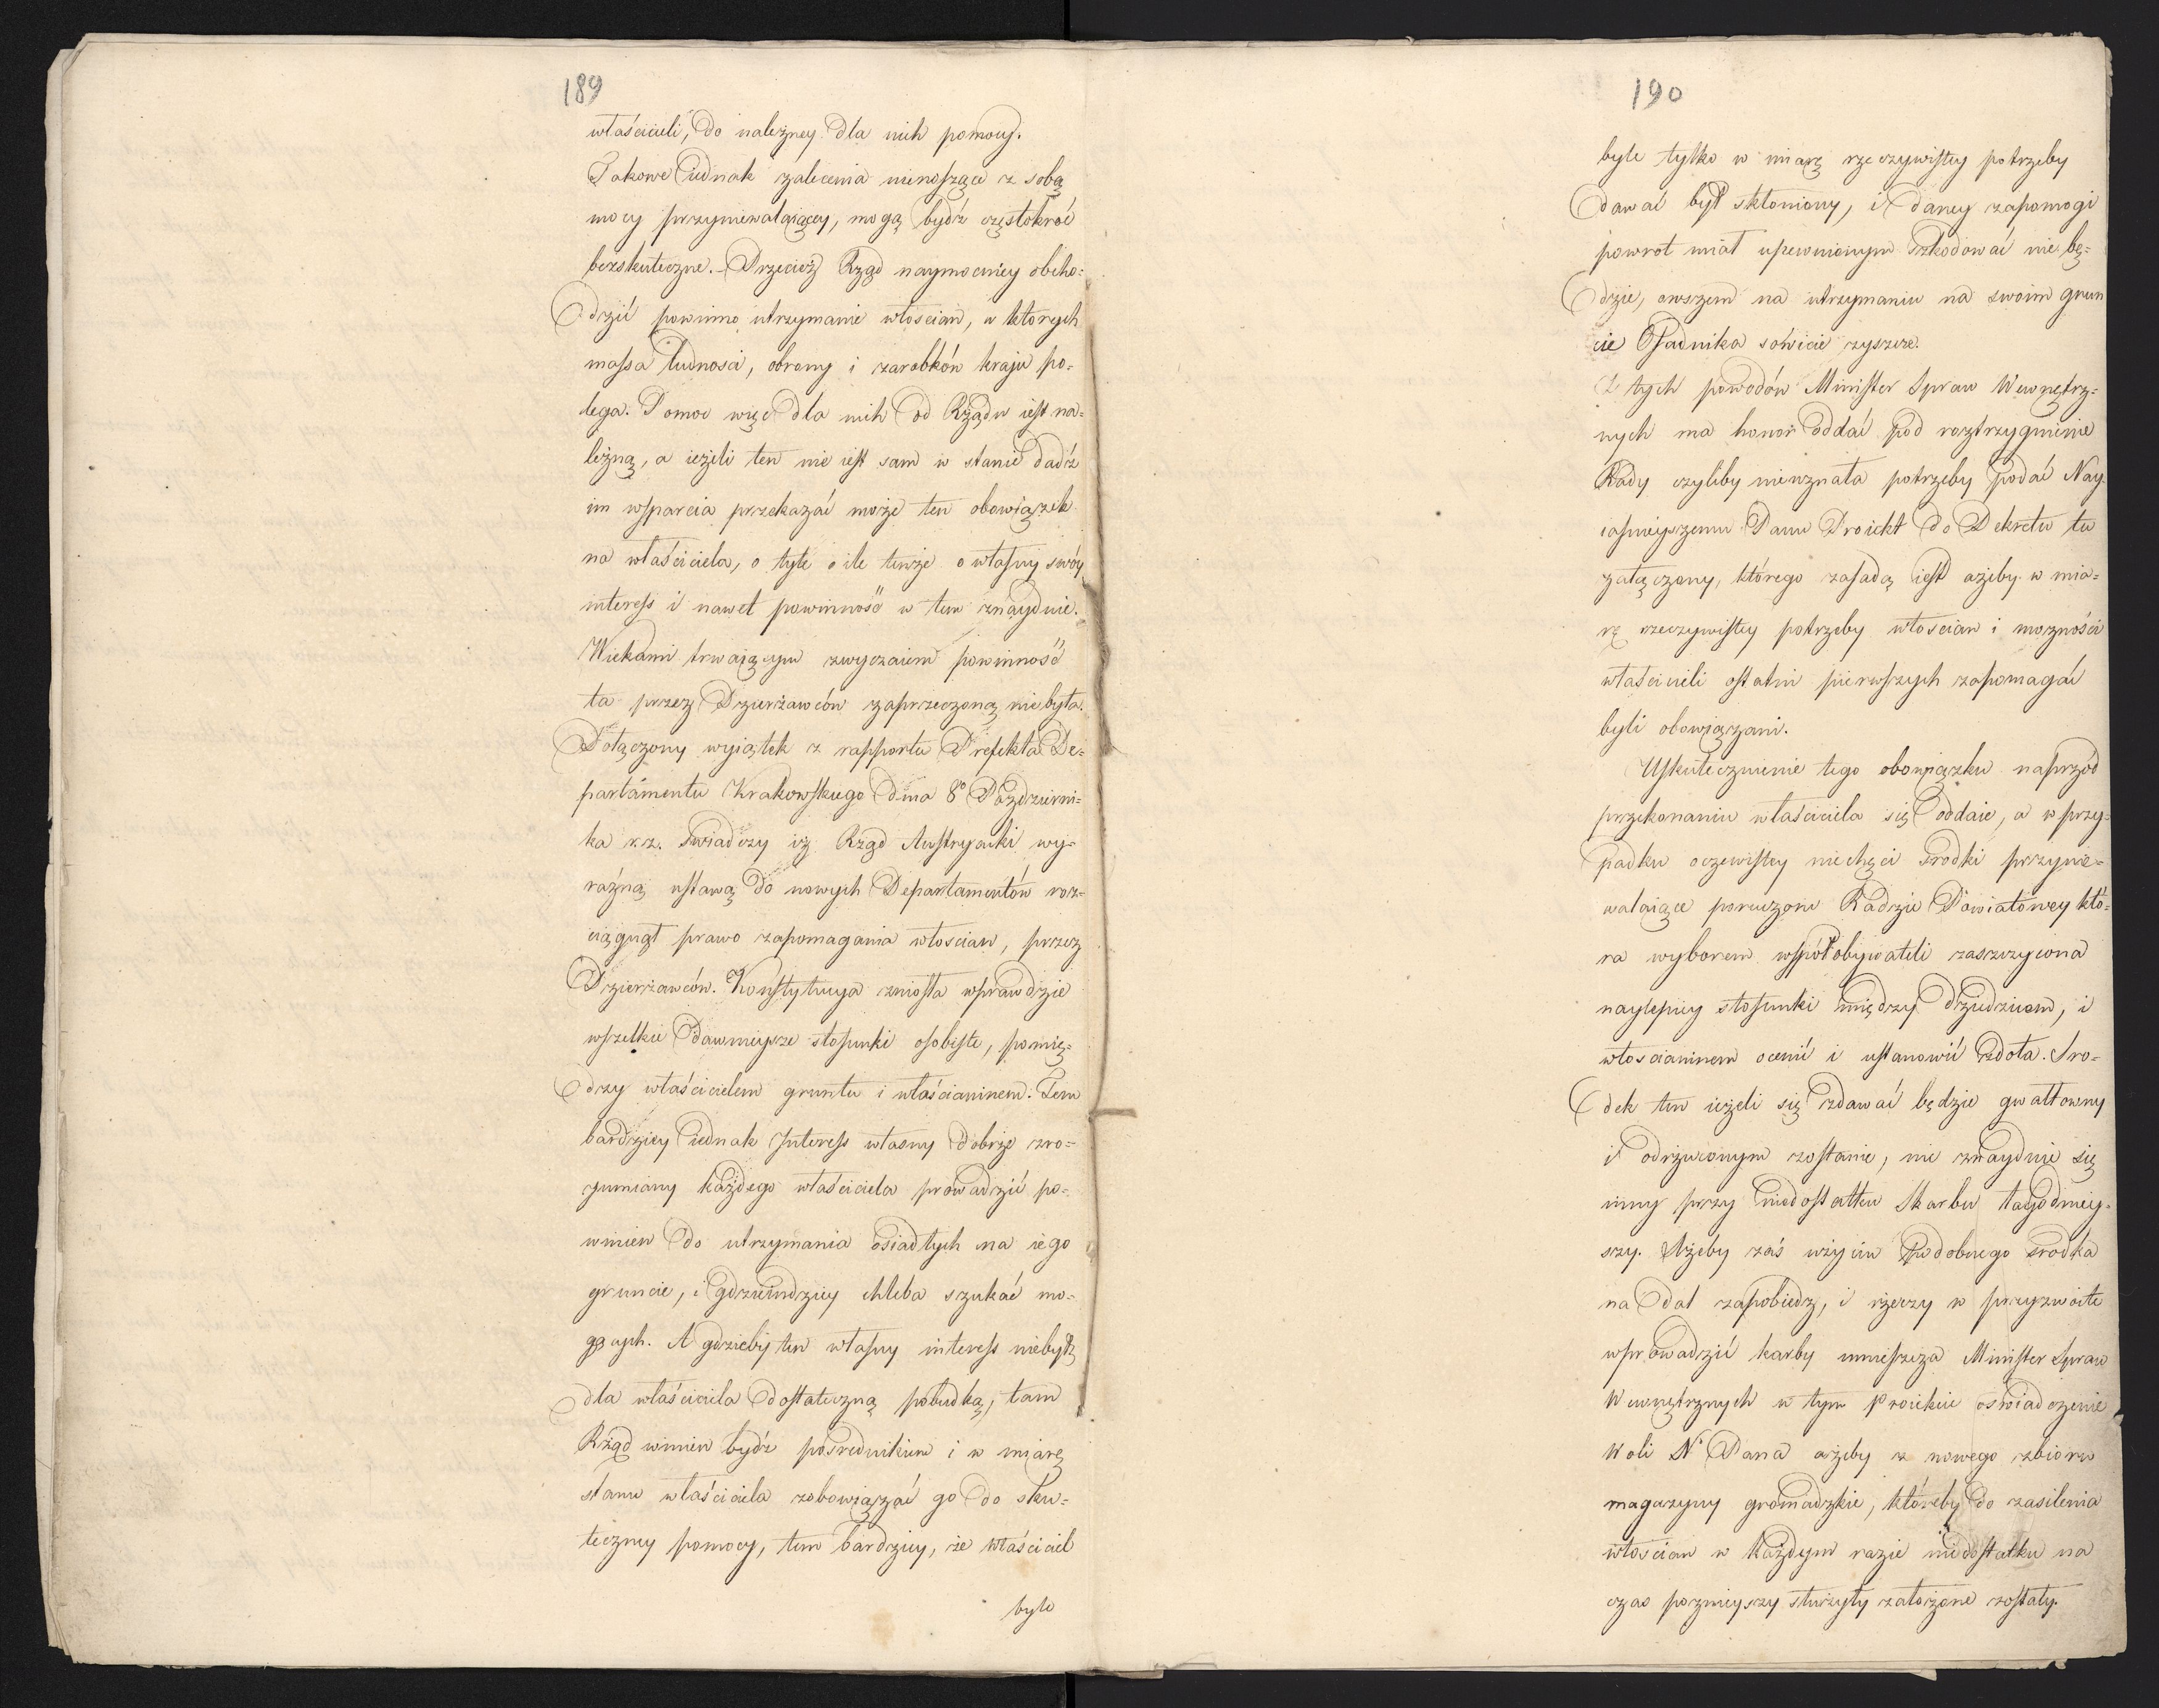 189
właścicieli, do należney dla nich pomocy.
Takowe iednak zalecenia nienoszące z sobą
mocy przyniewalaiącey, mogą bydź częstokroć
bezskuteczne. Przecież Rząd naymocniey obcho-
dzić powinno utrzymanie włościan, w których
massa ludności, obrony i zarobków kraju po-
lega. Pomoc więc dla nich od Rządu iest na-
leżną, a ieżeli ten nie iest sam w stanie dadź
im wsparcia przekazać może ten obowiązek
na właściciela, o tyle o ile tenże o własny swóy
interess i nawet powinność w tem znayduie.
Wiekami trwaiącym zwyczaiem powinność
ta przez Dzierżawców zaprzeczoną niebyła.
Dołączony wyiątek z rapportu Prefekta De-
partamentu Krakowskiego dnia 8º Październi-
ka r.z. świadczy iż Rząd Austryacki wy-
raźną ustawą do nowych Departamentów roz-
ciągnął prawo zapomagania włościan, przez
Dzierżawców. Konstytucya zniosła wprawdzie
wszelkie dawnieysze stosunki osobiste, pomię-
dzy właścicielem gruntu i właścianinem. Tem
bardziey iednak Interess własny dobrze zro-
zumiany każdego właściciela prowadzić po-
winien do utrzymania osiadłych na iego
gruncie, i gdzieindziey chleba szukać mo-
gących. A gdzieby ten własny interess niebył
dla właściciela dostateczną pobudką, tam
Rząd winien bydź pośrednikiem i w miarę
stanu właściciela zobowiązać go do sku-
teczney pomocy, tem bardziey, że właściciel
byle
190
byle tylko w miarę rzeczywistey potrzeby
dawać był skłoniony, i daney zapomogi
powrot miał upewnionym szkodować nie bę-
dzie, owszem na utrzymaniu na swoim grun
cie Osadnika sowicie zyszcze.
Z tych powodów Minister Spraw Wewnętrz-
nych ma honor oddać pod roztrzygnienie
Rady czyliby nieuznała potrzeby podać Nay-
iaśnieyszemu Panu Proiekt do Dekretu tu
załączony, którego zasadą iest ażeby w mia-
rę rzeczywistey potrzeby włościan i możności
właścicieli ostatni pierwszych zapomagać
byli obowiązani.
Uskutecznienie tego obowiązku naprzód
przekonaniu właściciela się oddaie, a w przy-
padku oczewistey niechęci środki przynie-
walaiące poruczone Radzie Powiatowey któ-
ra wyborem współobywateli zaszczycona
naylepiey stosunki między dziedzicem, i
włościaninem ocenić i ustanowić zdoła. Śro-
dek ten ieżeli się zdawać będzie gwałtowny
i odrzuconym zostanie, nie znayduie się
inny przy niedostatku Skarbu łagodniey-
szy. Ażeby zaś użyciu podobnego środka
na dal zapobiedz, i rzeczy w przyzwoite
wprowadzić karby umieszcza Minister Spraw
Wewnętrznych w tym proiekcie oświadczenie
Woli N. Pana ażeby z nowego zbioru
magazyny gromadzkie, któreby do zasilenia
włościan w każdym razie niedostatku na
czas poznieyszy służyły założone zostały.